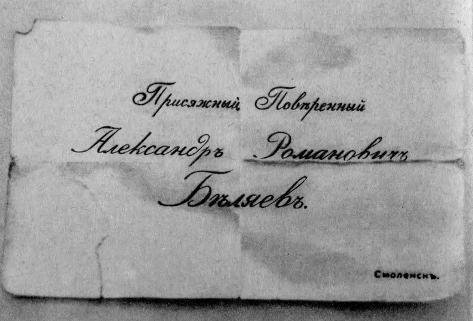 Присяжный Повѣренный
Александръ Романовичъ
Бѣляевъ.
Смоленскъ.